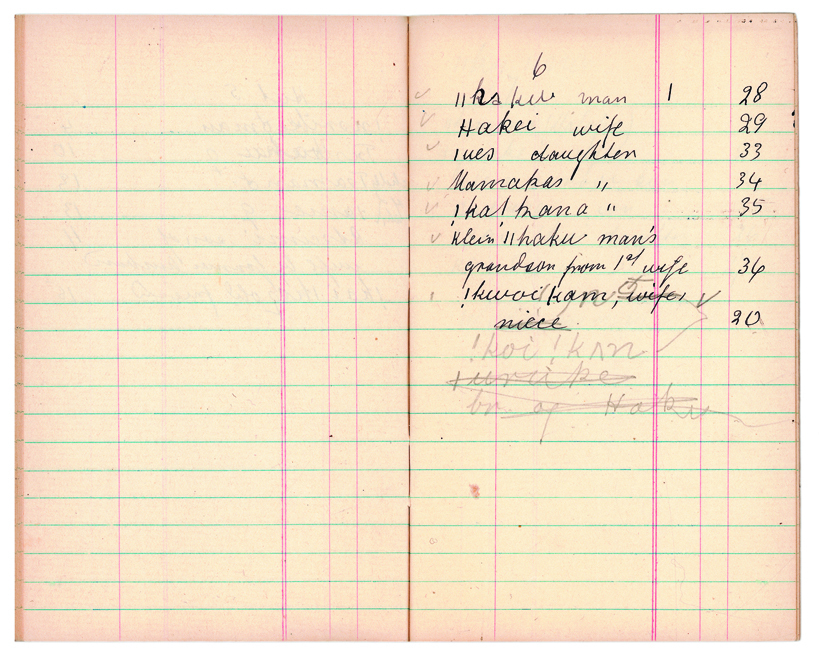 6
ǁhakuu man 1 28
Hakei wife 29
ǀues daughter 33
Mamakas " 34
ǃkaǀ hana " 35
'klein' ǁhaku man's
grandson from 1st wife 36
ǃkwoi kam, wife,
niece 20
ǃkoi ǃkʌn
br of Haku